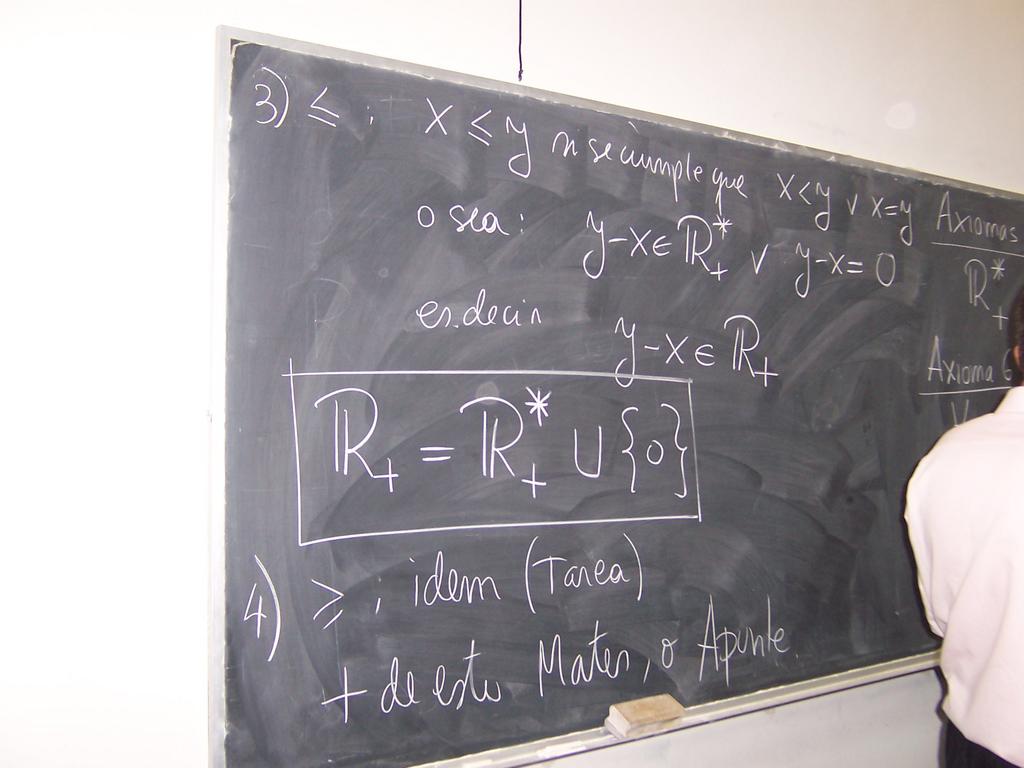 3) ≤ : x ≤ y si se cumple que x < y ∨ x = y
o sea: y-x ∈ ℝ₊* ∨ y-x = 0
es decir y-x ∈ ℝ₊
ℝ₊ = ℝ₊* ∪ {0}
4) ≥ : idem (Tarea)
+ de esto Mates, o Apunte.
Axiomas
ℝ₊*
Axioma 6